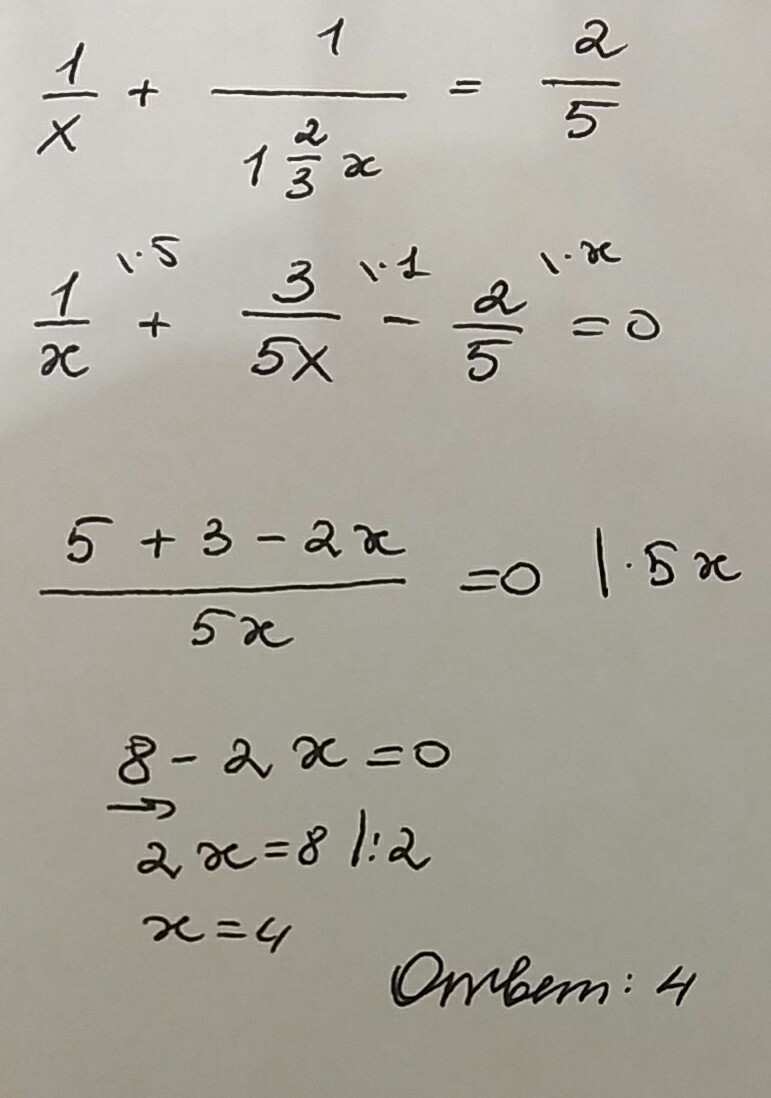 1/x + 1/(1 2/3 x) = 2/5
1/x \·5 + 3/5x \·1 - 2/5 \·x = 0
(5 + 3 - 2x)/5x = 0 |·5x
8 - 2x = 0
→
2x = 8 |:2
x = 4
Ответ: 4